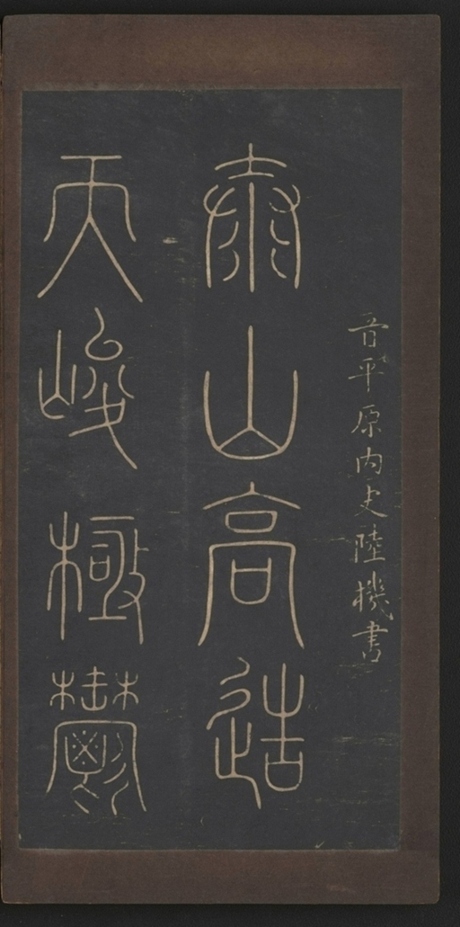 晉平原内史陸機書
泰山高造
天峻極鬱